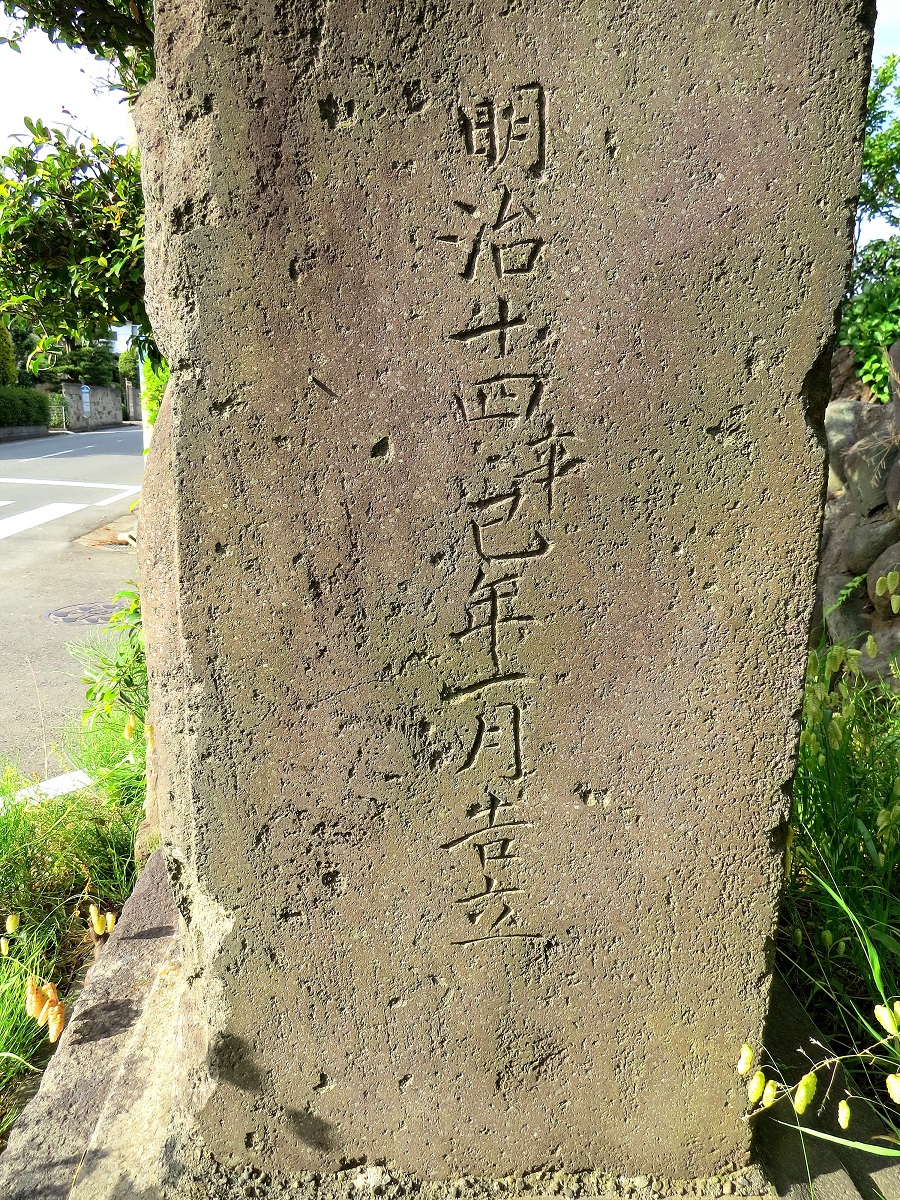 明治十四辛巳年一月吉立